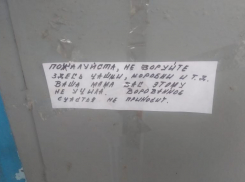 ПОЖАЛУЙСТА, НЕ ВОРУЙТЕ
ЗДЕСЬ ЧАШКИ, КОРОБКИ И Т.Д.
ВАША МАМА ВАС ЭТОМУ
НЕ УЧИЛА. ВОРОВАННОЕ
СЧАСТЬЕ НЕ ПРИНОСИТ.